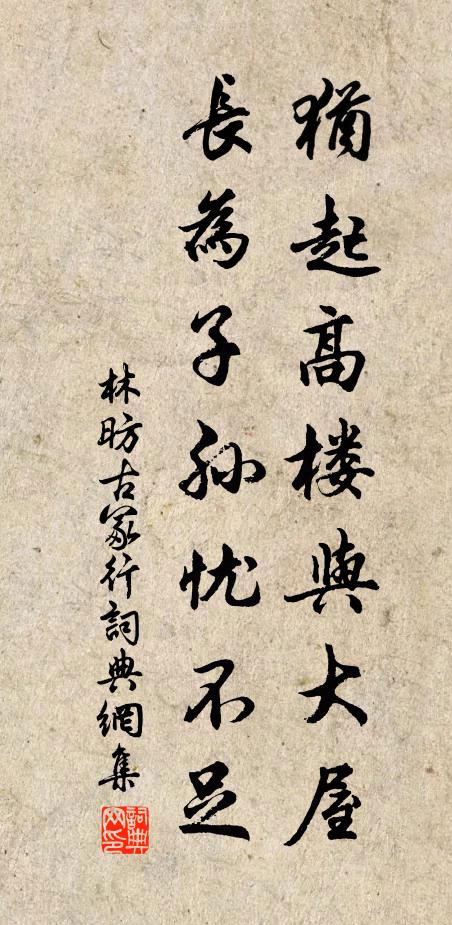 猶起高楼與大屋
長為子孙忧不足
林昉古冢行詞典網集
詞典網印